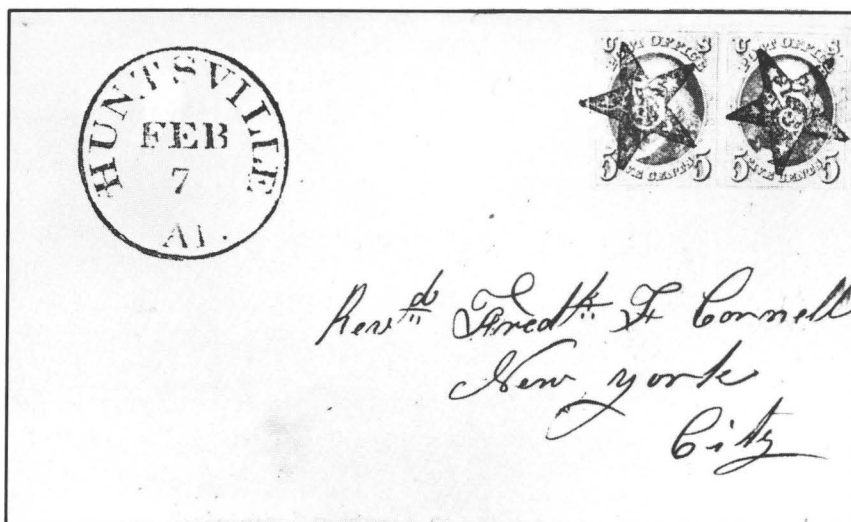 HUNTSVILLE
FEB
7
Al.
U S
POST OFFICE
5 FIVE CENTS 5
U S
POST OFFICE
5 FIVE CENTS 5
Revd Fredk F Cornell
New york
City